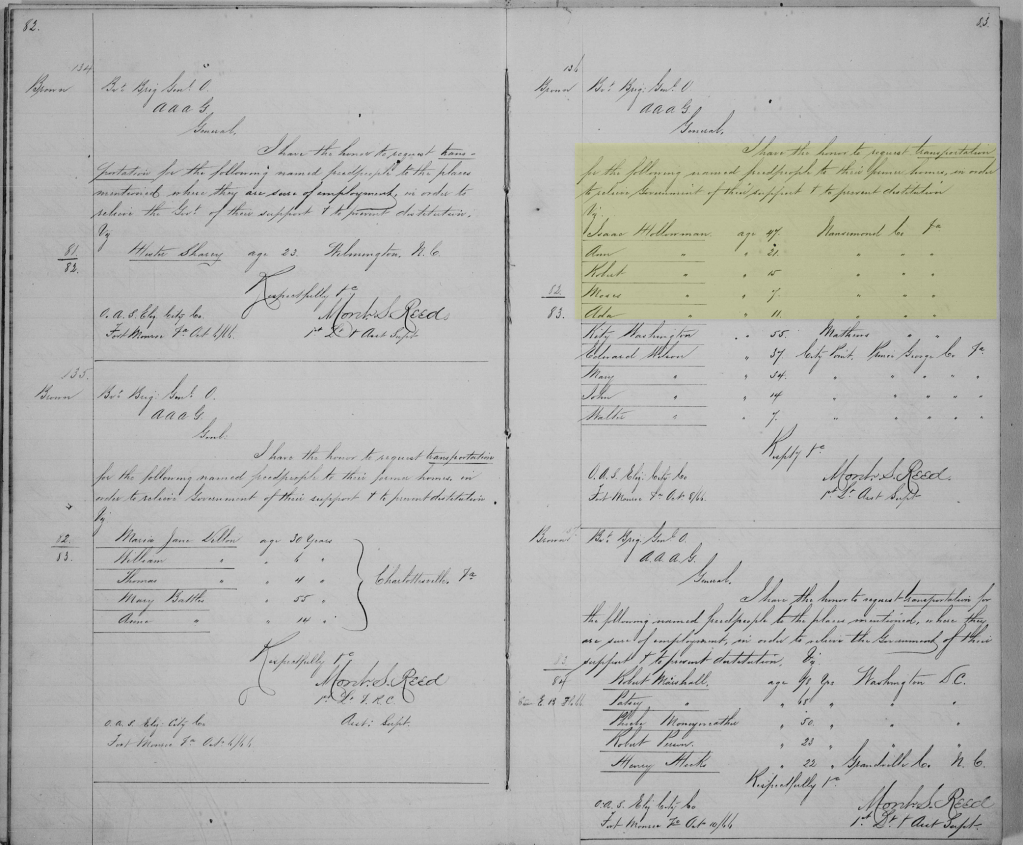 82.
134
Brown Bvt. Brig. Genl. O.
A A A G.
General,
I have the honor to request trans-
portation for the following named freedpeople to the places
mentioned, where they are sure of employment, in order to
relieve the Govt. of their support & to prevent destitution.
Viz
81/82. Hester Sharey age 23. Wilmington, N. C.
Respectfully &c
O. A. S. Eliz. City Co Mont. S. Reed
Fort Monroe Va Oct 6/66. 1st Lt & Asst Supt
135.
Brown Bvt. Brig. Genl. O.
A A A G
Genl.
I have the honor to request transportation
for the following named freedpeople to their former homes, in
order to relieve Government of their support & to prevent destitution
Viz
82/83. Maria Jane Dillon age 30 Years
William " " 6 "
Thomas " " 4 " Charlottesville, Va
Mary " 55 "
Anna " " 14 "
Respectfully &c
Mont. S. Reed
1st Lt V. R. C
O. A. S. Eliz. City Co Asst. Supt.
Fort Monroe Va Oct 6/66
83.
136
Brown Bvt. Brig. Genl. O
A A A G.
General,
I have the honor to request transportation
for the following named freedpeople to their former homes, in order
to relieve Government of their support & to prevent destitution
Viz
Isaac Hollowman age 47. Nansemond Co Va
Ann " " 21. " " "
Robert " " 15 " " "
82/83. Moses " " 7. " " "
Ada " " 11. " " "
Kity Washington " " 55. Mathews " "
Edward Wilson " 37. City Point, Prince George Co Va.
Mary " " 34. " " " " "
John " " 14 " " " " "
Walter " " 7. " " " " "
Respty &c
O. A. S. Eliz. City Co Mont. S. Reed
Fort Monroe Va Oct 8/66. 1st Lt Asst Supt
Brown Bvt. Brig. Genl. O
A. A. A. G.
General,
I have the honor to request transportation for
the following named freedpeople to the places mentioned, where they
are sure of employment, in order to relieve the Government of their
support & to prevent destitution, Viz
83/84 Robert Marshall. age Yrs Washington D. C.
Patsy " " 65 " " "
Moneymaker " 50 " " "
Robert " 23 " " "
Henry " 22 " Granville Co N. C.
Respectfully &c
O. A. S. Eliz City Co Mont. S. Reed
Fort Monroe Va Oct 10/66 1st Lt & Asst Supt.